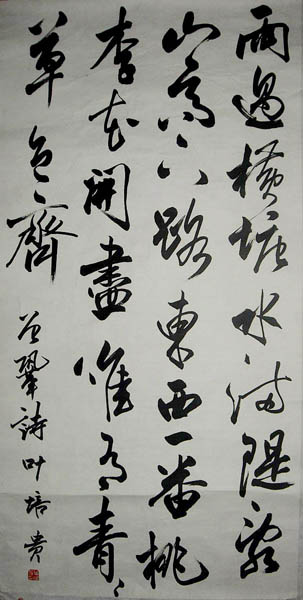 雨過横塘水满隄亂
山高下路東西一番桃
李花開盡唯有青々
草色齊
曾鞏詩 叶培贵